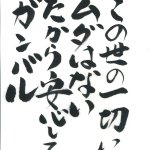 この世の一切に
ムダはない
だから安心して
ガンバル